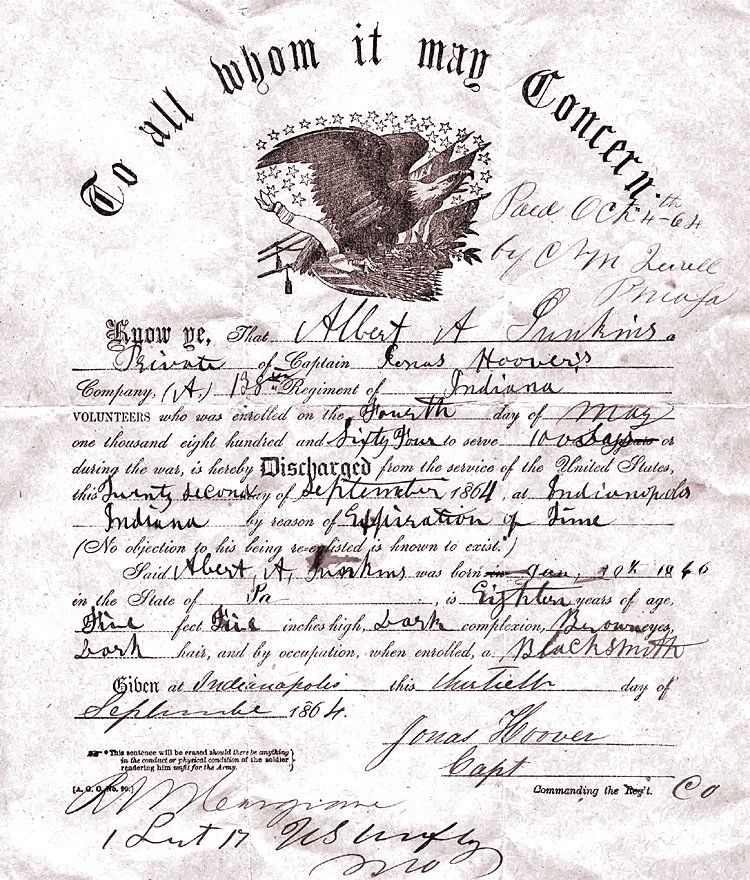 To all whom it may Concern
Paid Oct 4th-64
by C M Terrell
Know ye, That Albert A Junkins a
Private of Captain Jonas Hoover's
Company, (A.) 138th Regiment of Indiana
VOLUNTEERS who was enrolled on the Fourth day of May
one thousand eight hundred and Sixty Four to serve 100 Days years or
during the war, is hereby Discharged from the service of the United States,
this Twenty second day of September 1864, at Indianopolis
Indiana by reason of Expiration of Time
(No objection to his being re-enlisted is known to exist.*)
Said Albert A. Junkins was born in Jan, 10th 1846
in the State of Pa, is Eighteen years of age,
Five feet Five inches high, Dark complexion, Brown eyes,
Dark hair, and by occupation, when enrolled, a Blacksmith
Given at Indianapolis this thirtieth day of
September 1864.
Jonas Hoover
Capt
*This sentence will be erased should there be anything
in the conduct or physical condition of the soldier
rendering him unfit for the Army.
[A. G. O. No. 99.]
Commanding the Reg't. Co
1 Lut 17 US Infty